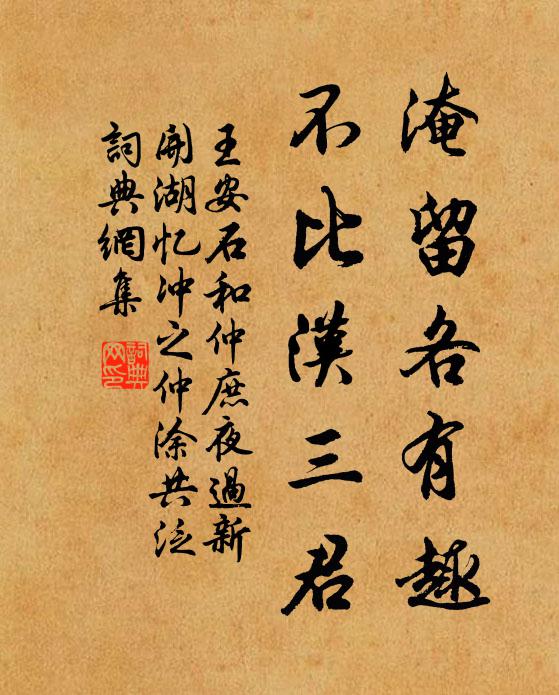 淹留各有趣
不比漢三君
王安石和仲庶夜過新
開湖忆冲之仲涂共泛
詞典網集
詞典网印